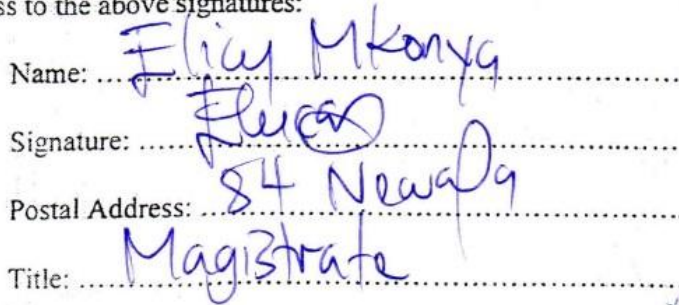 ss to the above signatures:
Name: Elicy Mkonya
Signature:
Postal Address: 84 Newala
Title: Magistrate